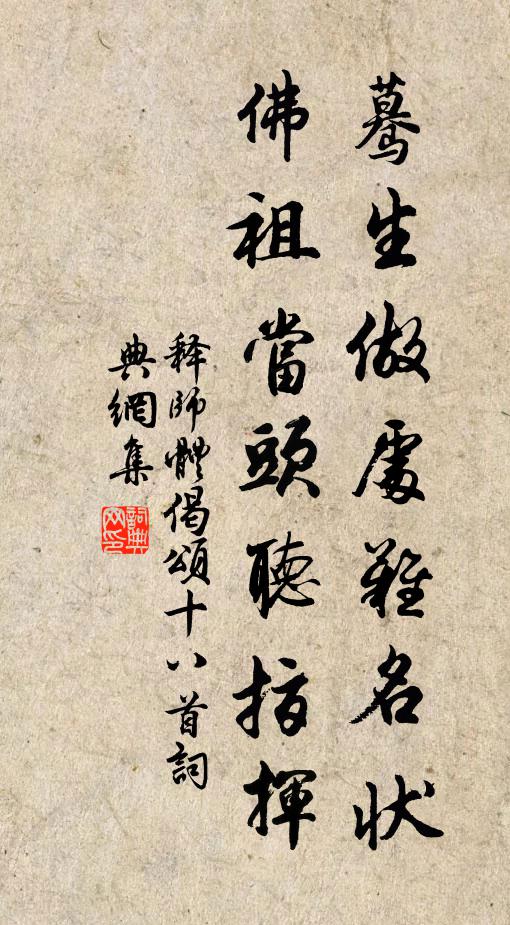 驀生做處難名状
佛祖當頭聽指揮
释師體偈頌十八首詞
典網集
詞典网印